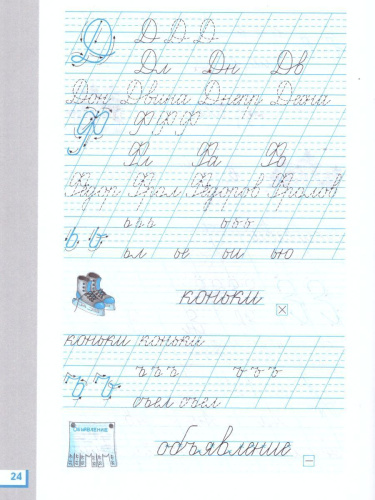 Д Д Д Д
Дл Дн Дв
Дон Двина Днепр Десна
Ф Ф Ф Ф
Фл Фа Фо
Фёдор Фрол Фёдоров Фролов
ь ь ь ь ь ь ь ь
ьл ье ьи ью
коньки
коньки коньки
ъ ъ ъ ъ ъ ъ ъ ъ
съел съел
ОБЪЯВЛЕНИЕ
объявление
24